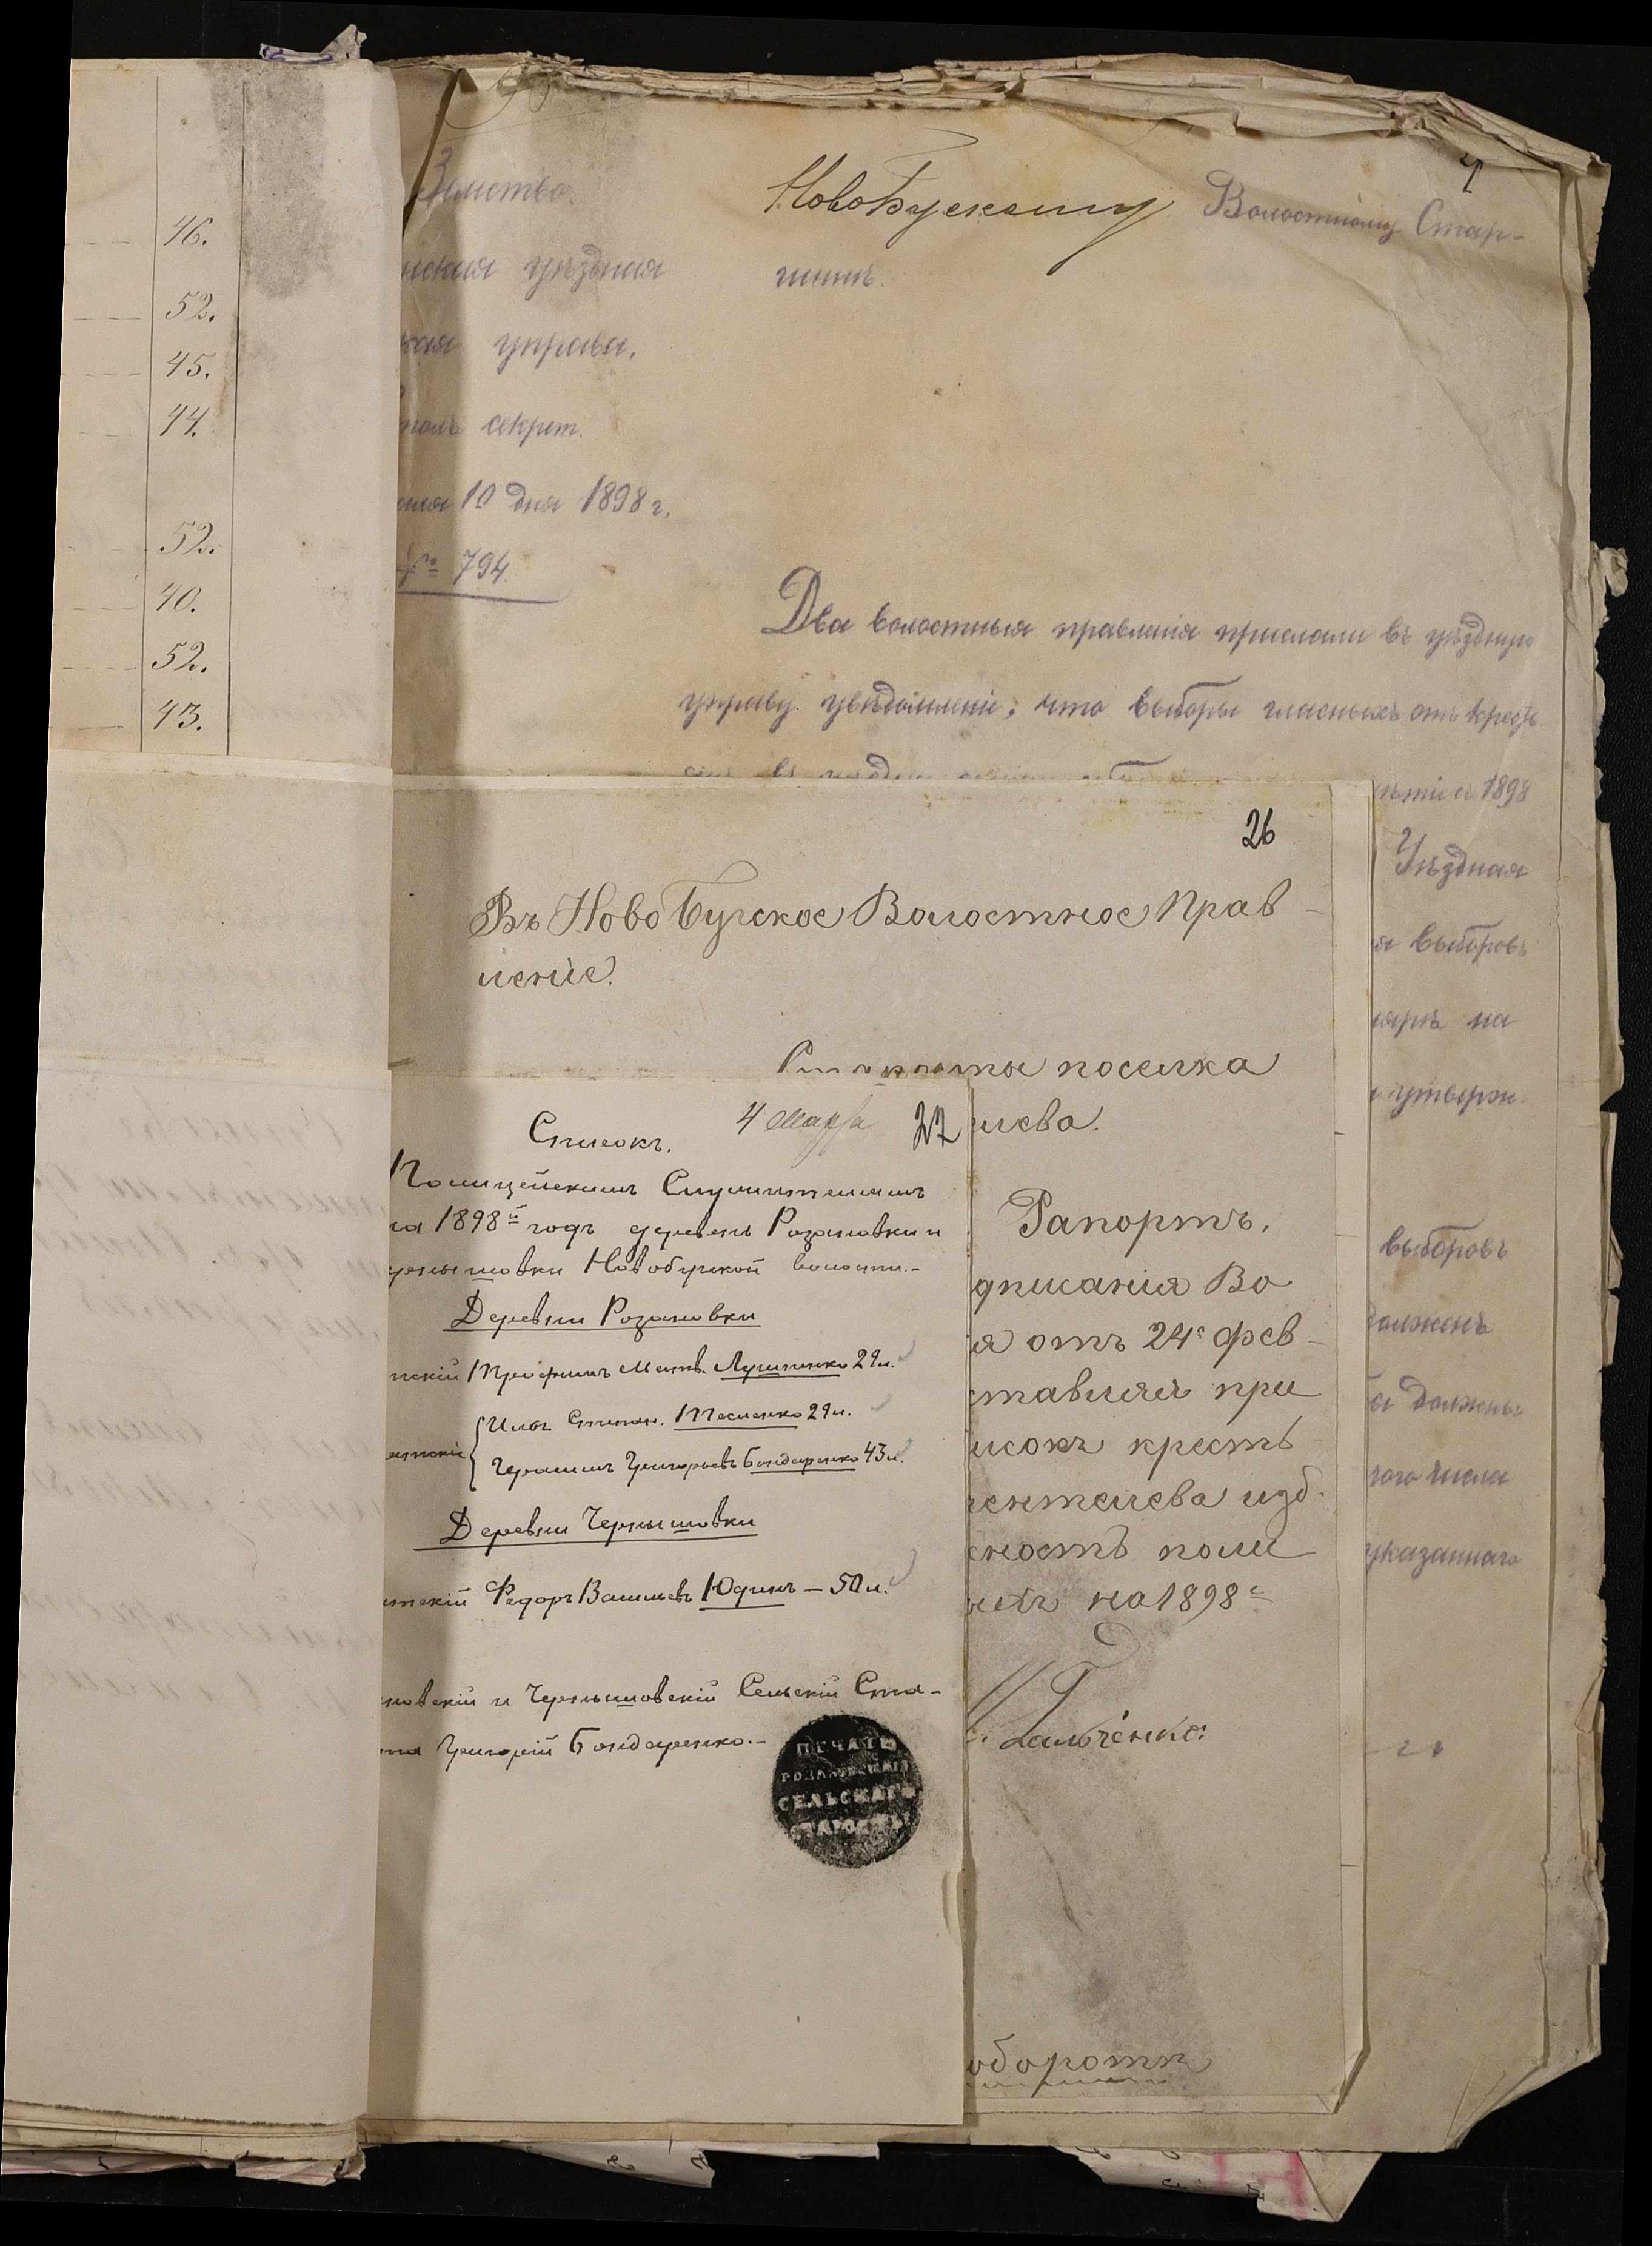 46.
52.
45.
44.
52.
40.
52.
43.
4
Земство.
НовоБугскому Волостному Стар-
шинѣ.
уѣздная
управа.
секрет.
10 дня 1898 г.
№ 794
Два волостныя правленія прислали въ уѣздную
управу увѣдомленіе, что выборы гласныхъ отъ крест
1898
Уѣздная
выборовъ
на
утверж
выборовъ
долженъ
должны
числа
указаннаго
26
Въ НовоБугское Волостное Прав-
леніе.
Старосты поселка
лева.
Рапортъ.
дписанія Во
я отъ 24г. фев-
ставляя при
исокъ кресть
ентелева изб.
ность поли
ихъ на 1898 г
Гальченко
оборотѣ
27
4 Марта
Списокъ.
Полицейскимъ Служителямъ
на 1898й годъ деревень Розановки и
Чернышовки Новобугской волости.-
Деревни Розановки
тскій Трофимъ Матв. Лушпенко 29 л.
Илья Степан. Тесленко 29 л.
Герасимъ Григорьевъ Бондаренко 43 л.
Деревни Чернышовки
тскій Федоръ Васильевъ Юдинъ - 50 л.
новскій и Чернышовскій Сельскій Ста-
Григорій Бондаренко.-
ПЕЧАТЬ
РОЗАНОВСКАГО
СЕЛЬСКАГО
СТАРОСТЫ